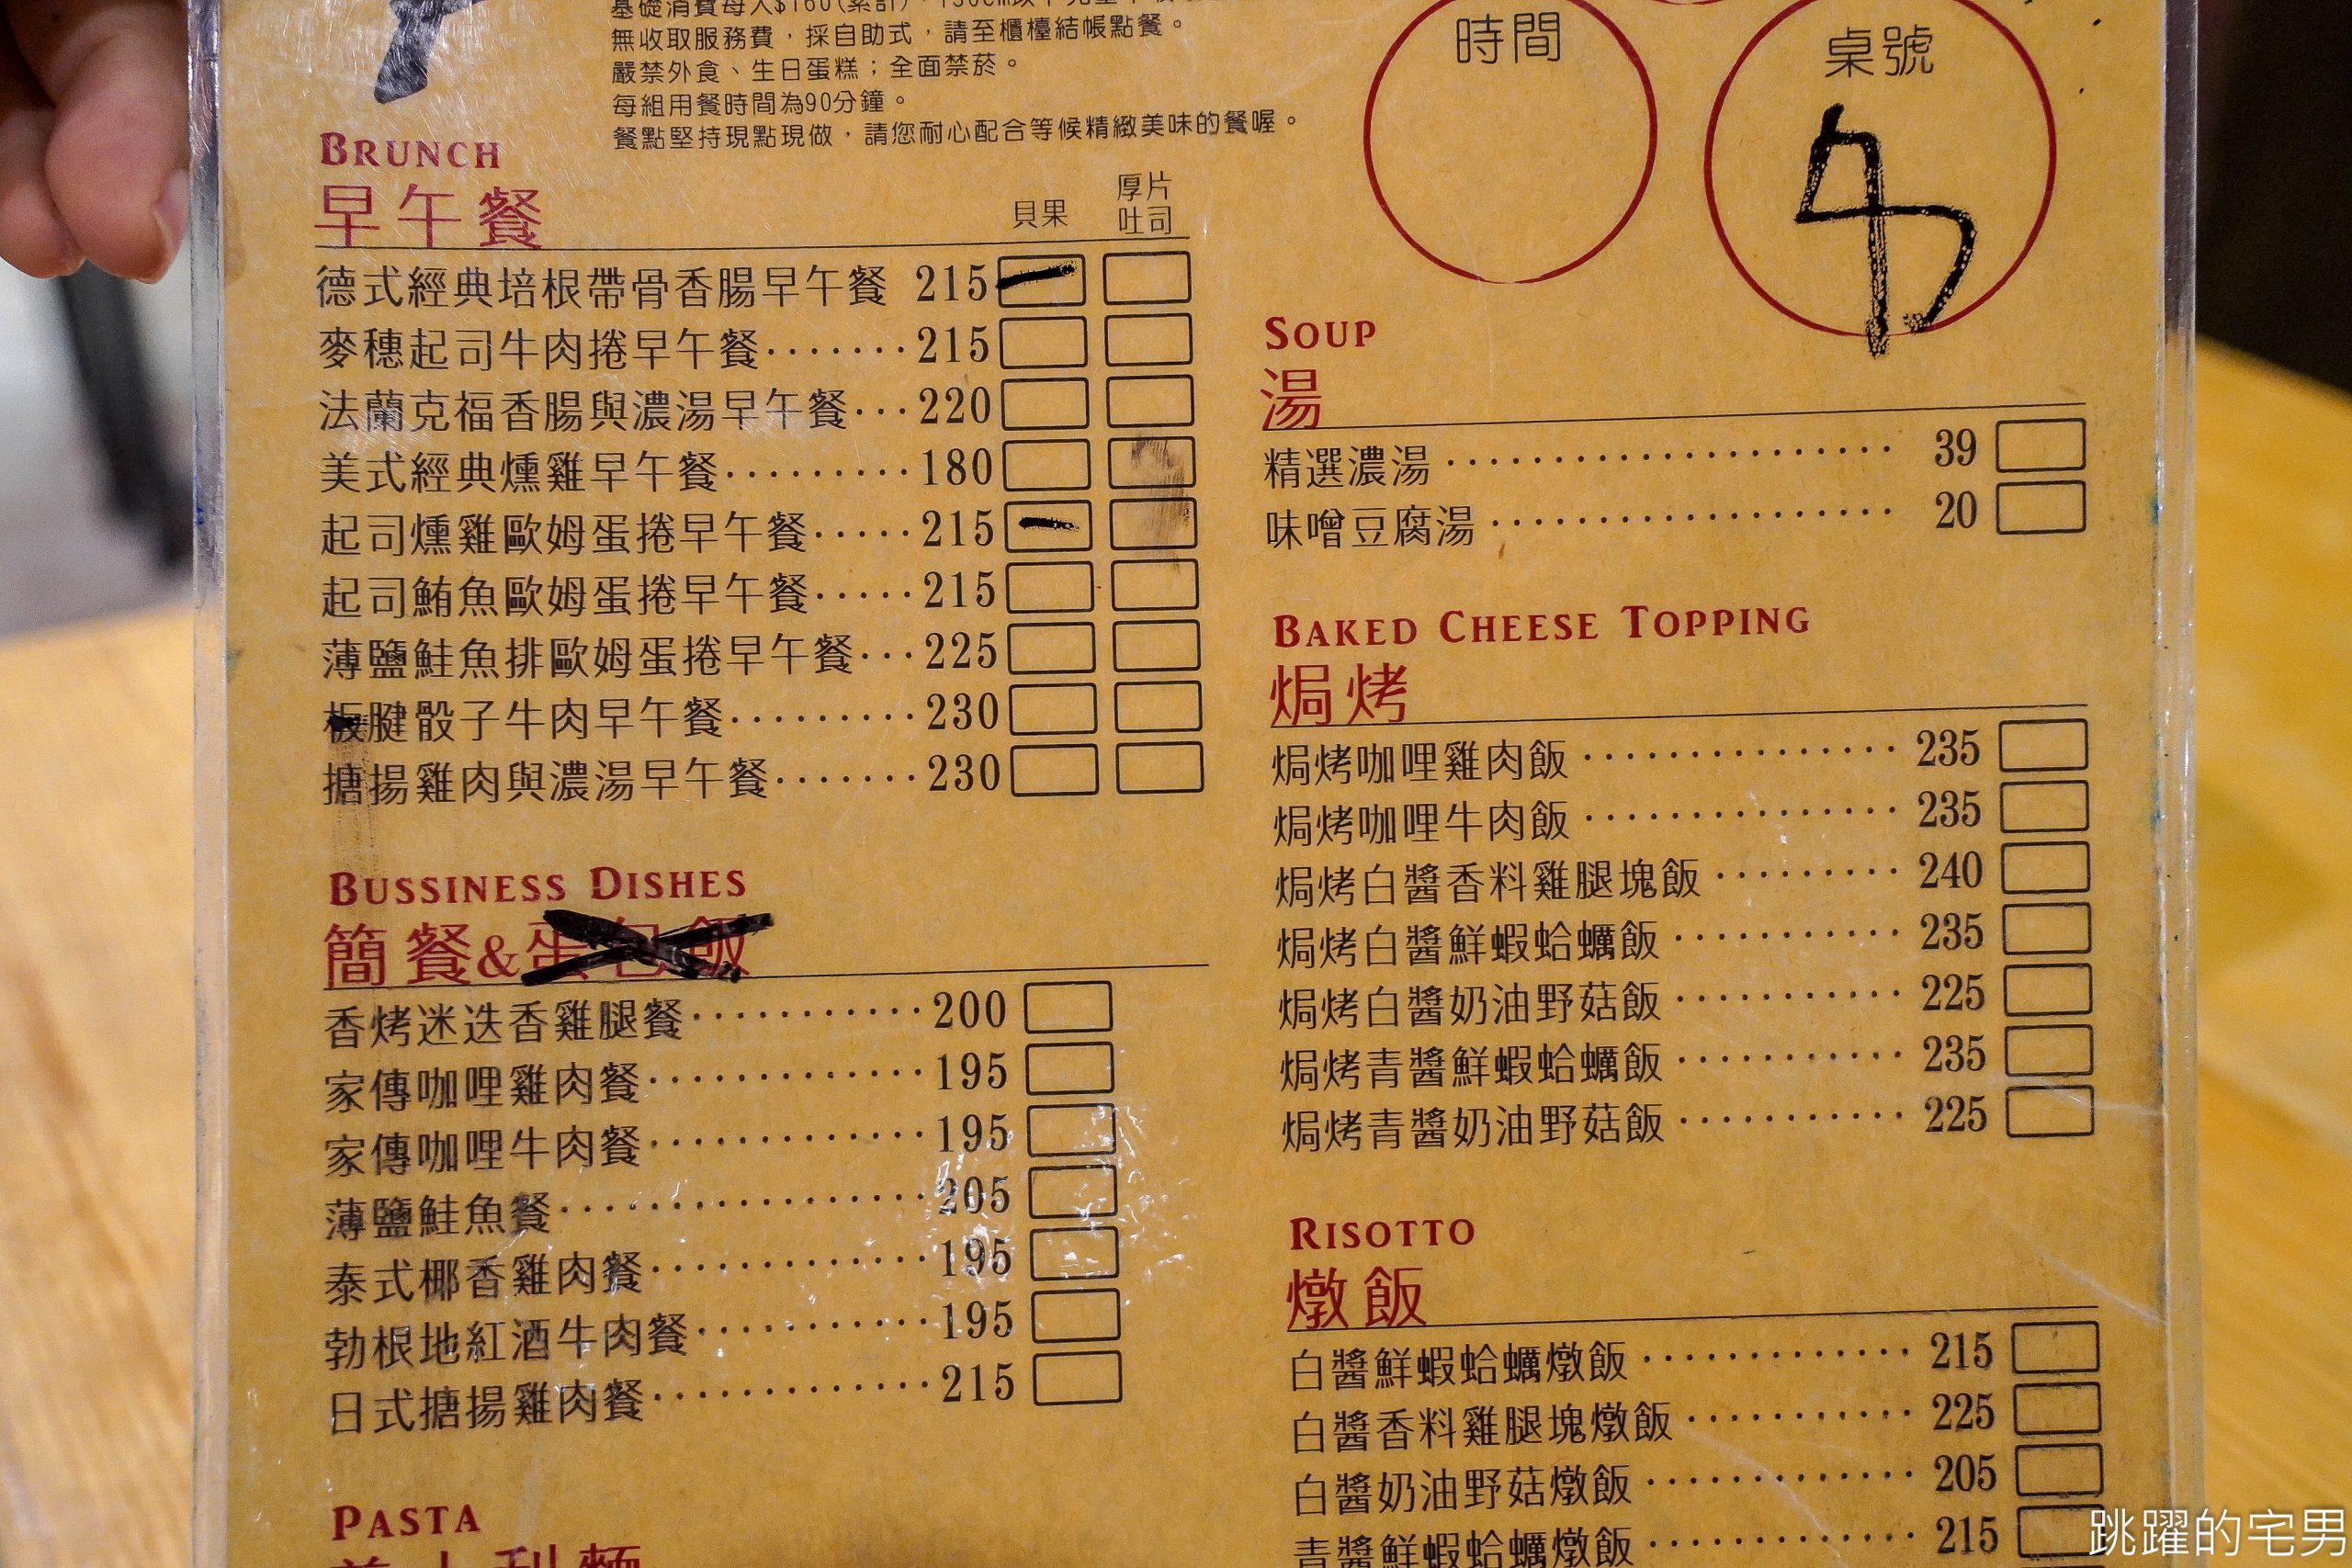 無收取服務費，採自助式，請至櫃檯結帳點餐。
嚴禁外食、生日蛋糕；全面禁菸。
每組用餐時間為90分鐘。
餐點堅持現點現做，請您耐心配合等候精緻美味的餐喔。
時間
桌號
BRUNCH
早午餐
貝果
厚片
吐司
德式經典培根帶骨香腸早午餐 215
麥穗起司牛肉捲早午餐·······215
法蘭克福香腸與濃湯早午餐···220
美式經典燻雞早午餐·········180
起司燻雞歐姆蛋捲早午餐·····215
起司鮪魚歐姆蛋捲早午餐·····215
薄鹽鮭魚排歐姆蛋捲早午餐···225
板腱骰子牛肉早午餐·········230
搪揚雞肉與濃湯早午餐·······230
BUSSINESS DISHES
簡餐&蛋包飯
香烤迷迭香雞腿餐···········200
家傳咖哩雞肉餐·············195
家傳咖哩牛肉餐·············195
薄鹽鮭魚餐·················205
泰式椰香雞肉餐·············195
勃根地紅酒牛肉餐···········195
日式搪揚雞肉餐·············215
PASTA
SOUP
湯
精選濃湯·····················39
味噌豆腐湯···················20
BAKED CHEESE TOPPING
焗烤
焗烤咖哩雞肉飯···············235
焗烤咖哩牛肉飯···············235
焗烤白醬香料雞腿塊飯·········240
焗烤白醬鮮蝦蛤蠣飯···········235
焗烤白醬奶油野菇飯···········225
焗烤青醬鮮蝦蛤蠣飯···········235
焗烤青醬奶油野菇飯···········225
RISOTTO
燉飯
白醬鮮蝦蛤蠣燉飯·············215
白醬香料雞腿塊燉飯···········225
白醬奶油野菇燉飯·············205
青醬鮮蝦蛤蠣燉飯·············215
跳躍的宅男